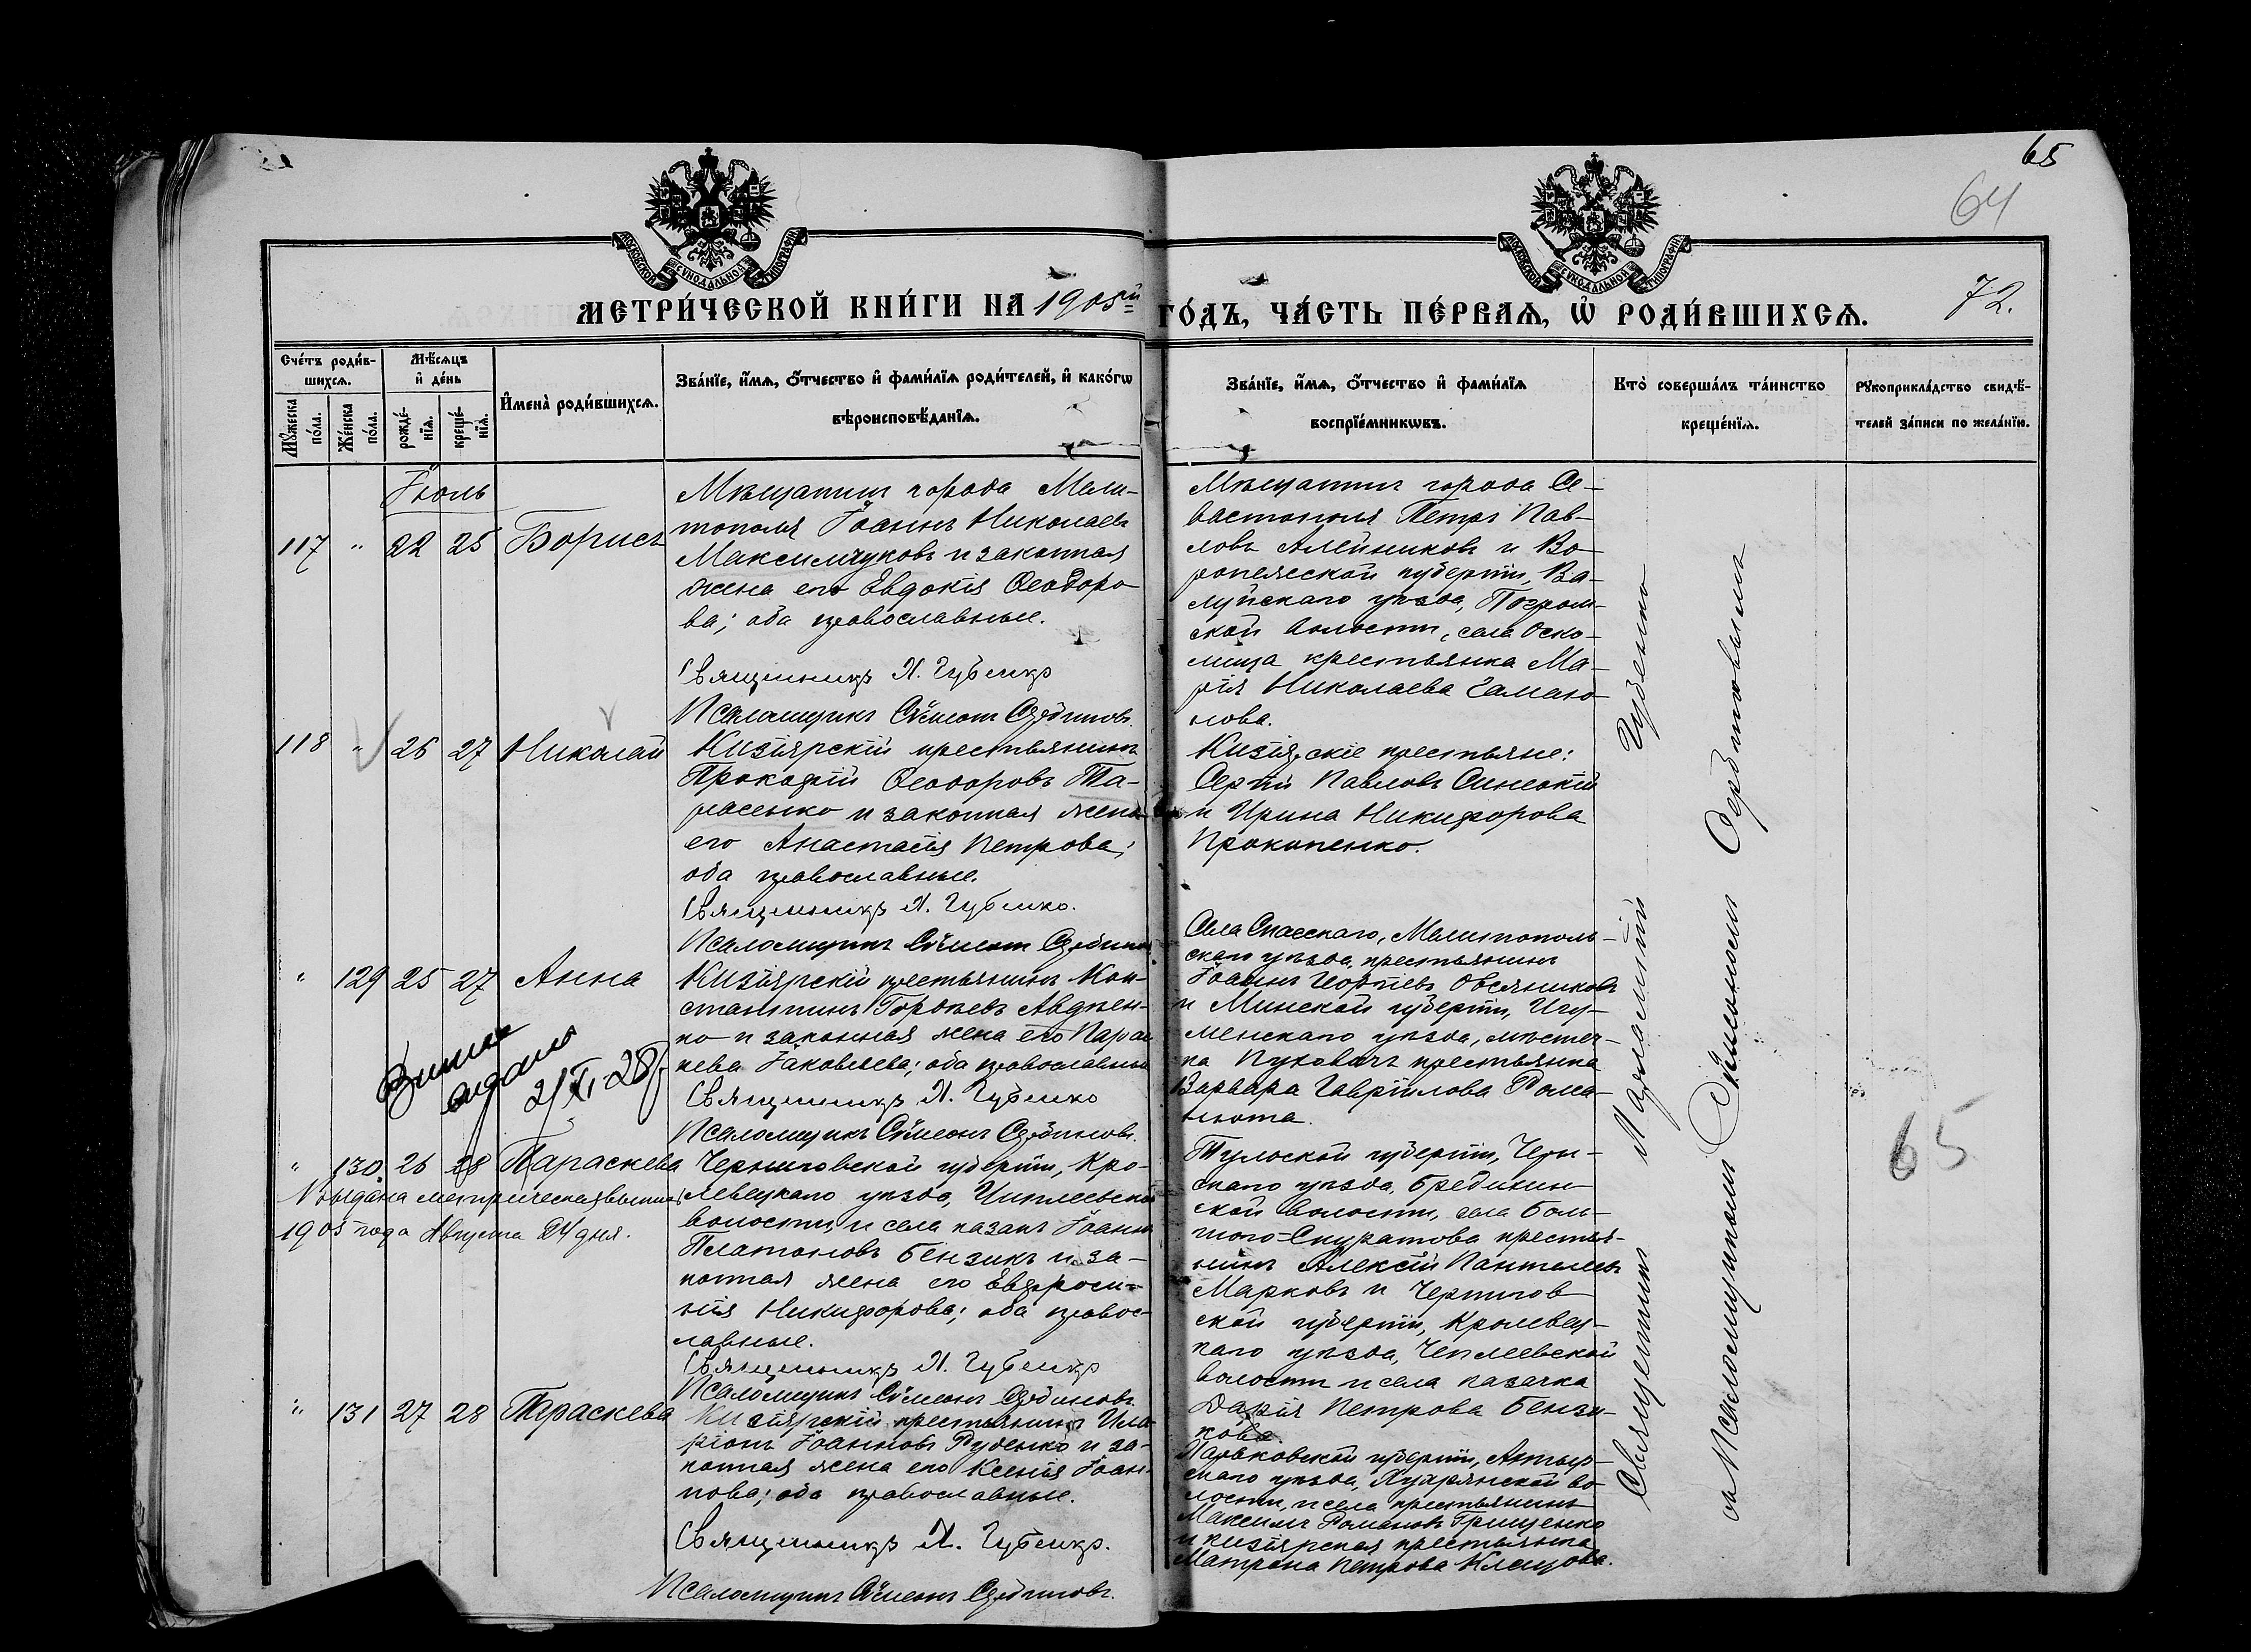 65
64
МОСКОВСКОЙ СѴНОДАЛЬНОЙ ТИПОГРАФІИ
МОСКОВСКОЙ СѴНОДАЛЬНОЙ ТИПОГРАФІИ
МЕТРИ́ЧЕСКОЙ КНИ́ГИ НА 1905й ГО́ДЪ, ЧА́СТЬ ПЕ́РВАѦ, Ѡ҆ РОДИ́ВШИХСѦ.
72.
Сче́тъ роди́в-
шихсѧ.
Мꙋ́жеска по́ла.
Же́нска по́ла.
Мѣ́сѧцъ
и҆ де́нь
рожде́-
нїѧ.
креще́-
нїѧ.
И҆мена̀ роди́вшихсѧ.
Зва́нїе, и҆́мѧ, ѻ҆́тчество и҆ фами́лїѧ роди́телей, и҆ како́гѡ
вѣроисповѣ́данїѧ.
Зва́нїе, и҆́мѧ, ѻ҆́тчество и҆ фами́лїѧ
воспрїе́мникѡвъ.
Кто̀ соверша́лъ та́инство
креще́нїѧ.
Рꙋкоприкла́дство свидѣ́-
телей за́писи по жела́нїю.
Іюль
117 " 22 25 Борисъ
Мѣщанинъ города Мели-
тополя Іоаннъ Николаевъ
Максимчуковъ и законная
жена его Евдокія Ѳеодоро-
ва; оба православные.
Священникъ Л. Губенко
Псаломщикъ Сѵмеонъ
Мѣщанинъ города Се-
вастополя Петръ Пав-
ловъ Алейниковъ и Во-
ронежской губерніи, Ва-
луйскаго уѣзда, Погром-
ской волости, села Оско-
лища крестьянка Ма-
рія Николаева
нова.
118 " 26 27 Николай
Кизіярскій крестьянинъ
Прокофій Ѳеодоровъ Та-
расенко и законная жена
его Анастасія Петрова;
оба православные.
Священникъ Л. Губенко.
Псаломщикъ Сѵмеонъ
Кизіярскіе крестьяне:
Сергій Павловъ Синегкій
и Ирина Никифорова
Прокопенко.
" 129 25 27 Анна
Кизіярскій крестьянинъ Кон-
стантинъ Авдѣен-
ко и законная жена его Парас-
кева Іаковлева; оба православные
Священникъ Л. Губенко
Псаломщикъ Сѵмеонъ
Села Спасскаго, Мелитополь-
скаго уѣзда, крестьянинъ
Іоаннъ Георгіевъ Овсянниковъ
и Минской губерніи, Игу-
менскаго уѣзда, мѣстеч-
ка Пуховичъ крестьянка
Варвара Гавріилова Рома-
нюта.
видана
2/XI-28р.
" 130. 26 28 Параскева
Выдана метрическая выпись
1905 года Августа 24 дня.
Черниговской губерніи, Кро-
левецкаго уѣзда,
волости и села казакъ Іоаннъ
Платоновъ Бензикъ и за-
конная жена его Евфроси-
нія Никифорова; оба правос-
лавные.
Священникъ Л. Губенко
Псаломщикъ Сѵмеонъ
Тульской губерніи, Черн-
скаго уѣзда, Бредихин-
ской волости, села Боль-
шого-Скуратова крестья-
нинъ Алексій Пантелеевъ
Марковъ и Чернигов-
ской губерніи, Кролевец-
каго уѣзда, Чеплеевской
волости и села казачка
Дарія Петрова Бензи-
кова.
" 131 27 28 Параскева
Кизіярскій крестьянинъ Ила-
ріонъ Іоанновъ Руденко и за-
конная жена его Ксенія Іоан-
нова; оба православные.
Священникъ Л. Губенко.
Псаломщикъ Сѵмеонъ
Харьковской губерніи, Ахтыр-
скаго уѣзда, Хухрянской во-
лости, и села крестьянинъ
Максимъ Романовъ Грищенко
и кизіярская крестьянка
Матрона Петрова Клецова.
Священникъ Губенко
съ Псаломщикомъ Сѵмеономъ
65